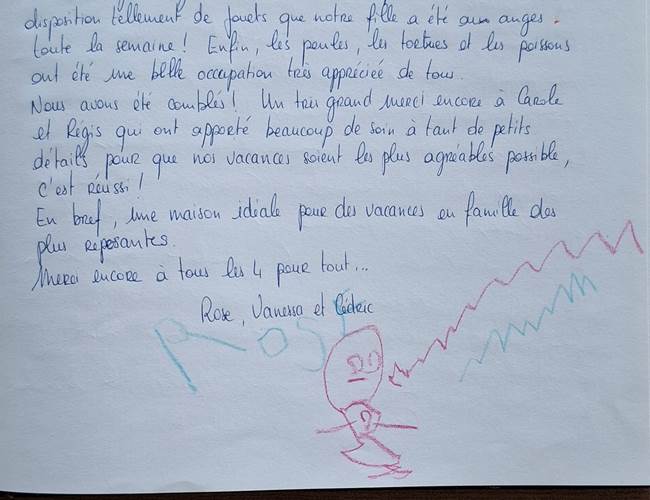 disposition tellement de jouets que notre fille a été aux anges.
toute la semaine ! Enfin, les poules, les tortues et les poissons
ont été une belle occupation très appréciée de tous.
Nous avons été comblés ! Un très grand merci encore à Carole
et Régis qui ont apporté beaucoup de soin à tant de petits
détails pour que nos vacances soient les plus agréables possible,
c'est réussi !
En bref, une maison idéale pour des vacances en famille des
plus reposantes.
Merci encore à tous les 4 pour tout...
Rose, Vanessa et Cédric
ROSE